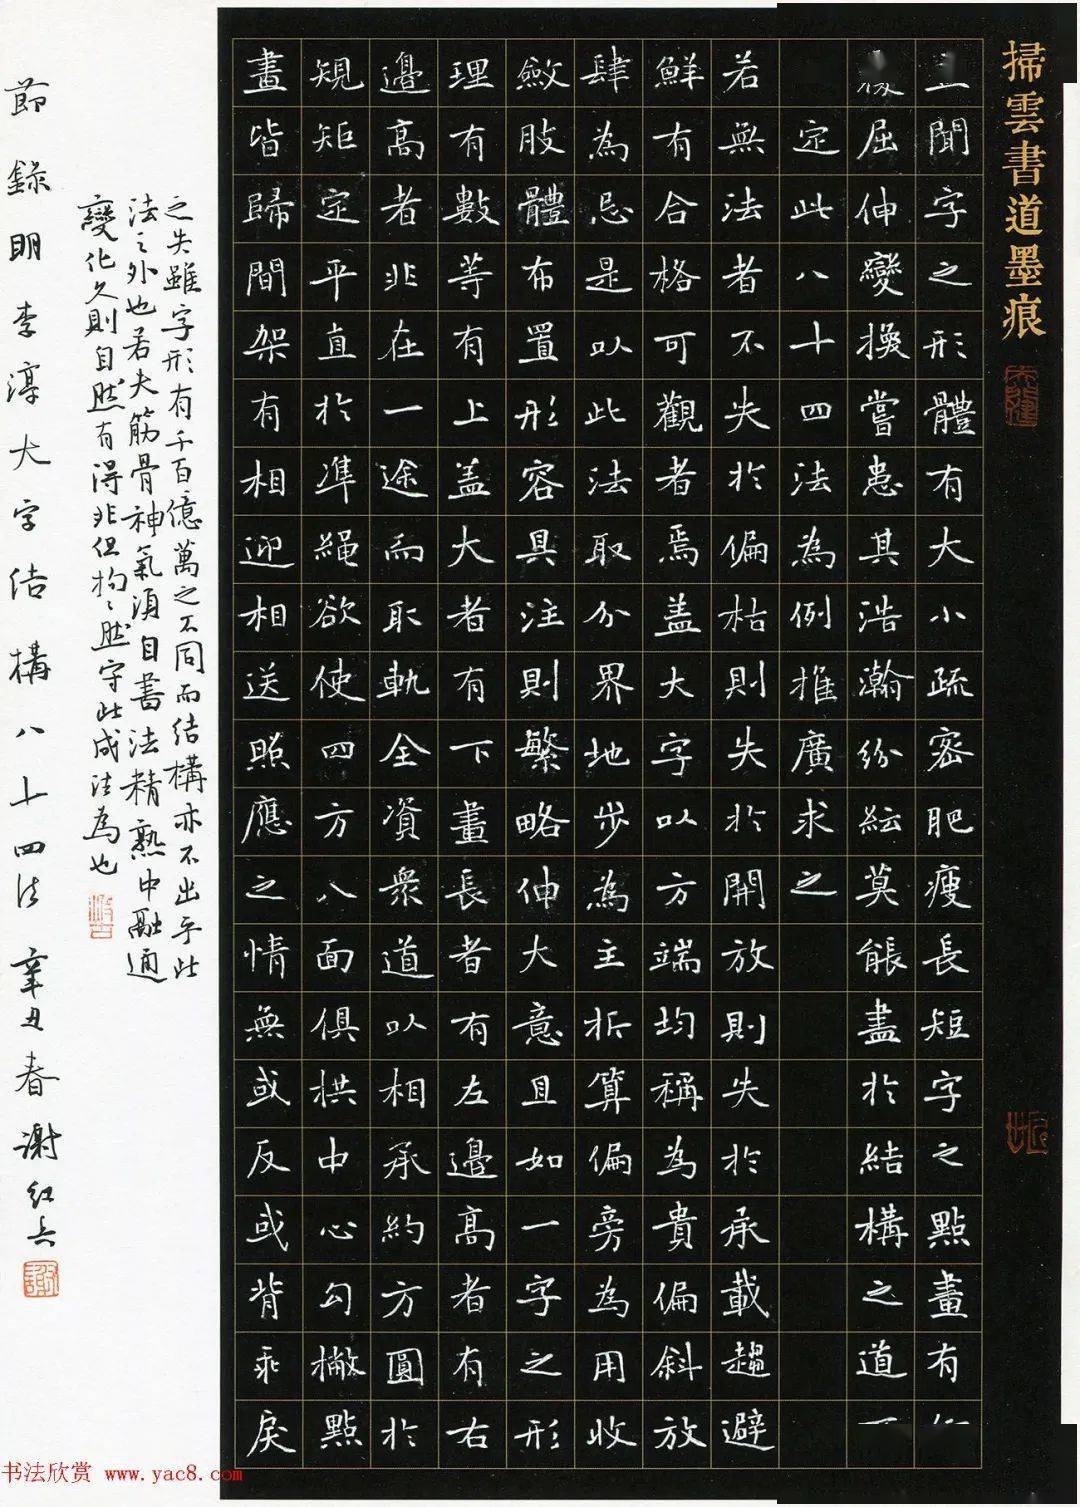 掃雲書道墨痕
聞字之形體有大小疏密肥瘦長短字之點畫有
屈伸變換嘗患其浩瀚紛紜莫能盡於結構之道
定此八十四法為例推廣求之
若無法者不失於偏枯則失於開放則失於承載趨避
鮮有合格可觀者焉盖大字以方端均稱為貴偏斜放
肆為忌是以此法取分界地步為主折算偏旁為用收
斂肢體布置形容具注則繁略伸大意且如一字之形
理有數等有上盖大者有下畫長者有左邊高者有右
邊高者非在一途而取軌全資衆道以相承約方圓於
規矩定平直於準繩欲使四方八面俱栱中心勾撇點
畫皆歸間架有相迎相送照應之情無或反或背乖戾
之失雖字形有千百億萬之不同而結構亦不出乎此
法之外也若夫筋骨神氣須自書法精熟中融通
變化久則自然有得非但拘拘然守此成法為也
節錄明李淳大字结構八十四法辛丑春谢红兵
书法欣赏 www.yac8.com